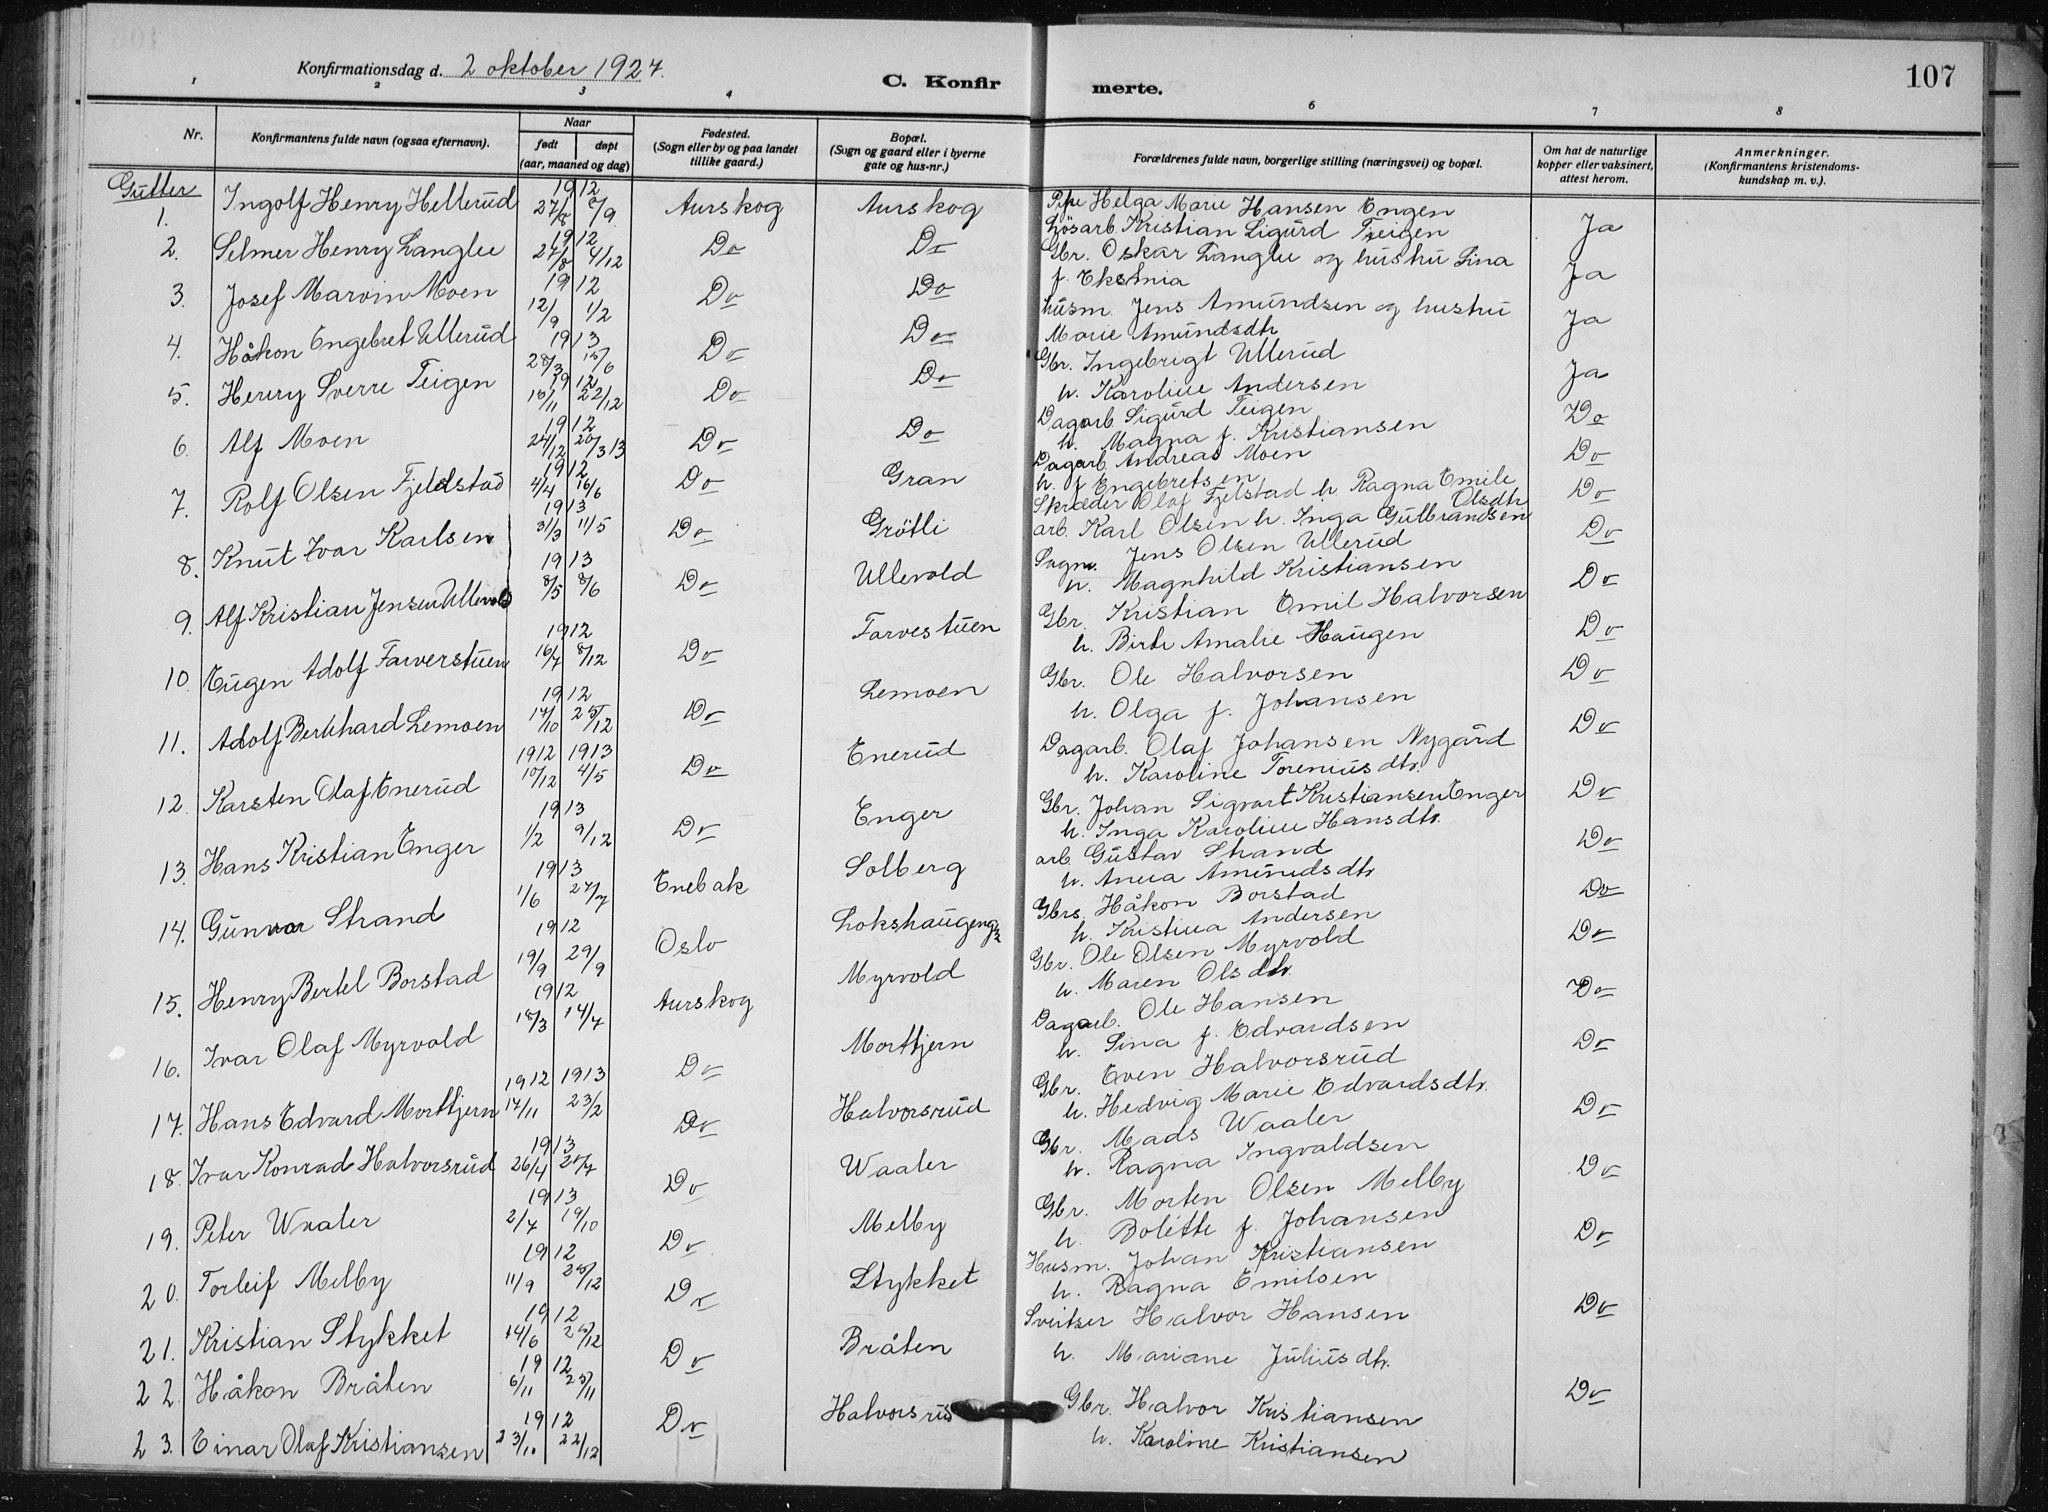 Konfirmationsdag d. 2 oktober 1927.
C. Konfirmerte.
107
1 2 3 4 6 7 8
Nr.
Konfirmantens fulde navn (ogsaa efternavn).
Naar
født
døpt
(aar, maaned og dag)
Fødested.
(Sogn eller by og paa landet
tillike gaard.)
Bopæl.
(Sogn og gaard eller i byerne
gate og hus-nr.)
Forældrenes fulde navn, borgerlige stilling (næringsvei) og bopæl.
Om hat de naturlige
kopper eller vaksinert,
attest herom.
Anmerkninger.
(Konfirmantens kristendoms-
kundskap m. v.).
Gutter
1. Ingolf Henry Hellerud 1912 27/8 8/9 Aurskog Aurskog Pipe Helga Marie Hansen Engen
Løsarb Kristian Sigurd Teigen Ja
2. Selmer Henry Langlee 1912 27/8 4/12 Do Do Gbr. Oskar Langlee og hustru Lina
f. Eksenia Ja
3. Josef Marvin Moen 1912 12/9 1/2 Do Do husm. Jens Amundsen og hustru
Marie Amundsdtr Ja
4. Håkon Engebret Ullerud 1913 28/3 15/6 Do Do Gbr. Ingebrigt Ullerud
h. Karoline Andersen Ja
5. Henry Sverre Teigen 1912 16/11 22/12 Do Do Dagarb Sigurd Teigen
h. Magna f. Kristiansen Do
6. Alf Moen 1912 24/12 20/3 13 Do Do Dagarb. Andreas Moen
h. f Engebretsen Do
7. Rolf Olsen Fjeldstad 1912 4/4 16/6 Do Gran Skrædder Olaf Fjelstad h Ragna Emile
Olsdtr Do
8. Knut Ivar Karlsen 1913 31/3 11/5 Do Grötli arb. Karl Olsen h. Inga Gulbrandsen Do
9. Alf Kristian Jensen Ullevold 1913 8/5 8/6 Do Ullevold Sagm. Jens Olsen Ullerud
h. Magnhild Kristiansen Do
10. Eugen Adolf Farverstuen 1912 16/7 8/12 Do Farvestuen Gbr. Kristian Emil Halvorsen
h. Birte Amalie Haugen Do
11. Adolf Bernhard Lemoen 1912 17/10 25/12 Do Lemoen Gbr. Ole Halvorsen
h. Olga f. Johansen Do
12. Karsten Olaf Enerud 1912 1913 10/12 4/5 Do Enerud Dagarb. Olaf Johansen Nygård
h. Karoline Toreniusdtr. Do
13. Hans Kristian Enger 1913 1/2 9/12 Do Enger Gbr. Johan Sigvart Kristiansen Enger
h. Inga Karoline Hansdtr. Do
14. Gunvor Strand 1913 1/6 27/7 Enebak Solberg arb. Gustav Strand
h. Anna Amundsdtr Do
15. Henry Bertel Borstad 1912 19/9 29/9 Oslo Lokshaugeng Gbrs. Håkon Borstad
h. Kristina Andersen Do
16. Ivar Olaf Myrvold 1912 18/3 14/7 Aurskog Myrvold Gbr. Ole Olsen Myrvold
h. Maren Olsdtr. Do
17. Hans Edvard Morttjern 1912 1913 17/11 23/2 Do Morttjern Dagarb. Ole Hansen
h. Lina f. Edvardsen Do
18. Ivar Konrad Halvorsrud 1913 26/4 20/7 Do Halvorsrud Gbr. Even Halvorsrud
h. Hedvig Marie Edvardsdtr. Do
19. Peter Waaler 1913 2/7 19/10 Do Waaler Gbr. Mads Waaler
h. Ragna Ingvaldsen Do
20. Torleif Melby 1912 11/9 25/12 Do Melby Gbr. Morten Olsen Melby
h. Bolette f. Johansen Do
21. Kristian Stykket 1912 14/6 25/12 Do Stykket Husm. Johan Kristiansen
h. Ragna Emilsen Do
22. Håkon Bråten 1912 6/11 25/11 Do Bråten Sveitser Halvor Hansen
h. Mariane Juliusdtr. Do
23. Einar Olaf Kristiansen 1912 23/10 22/12 Do Halvorsrud Gbr. Halvor Kristiansen
h. Karoline Kristiansen Do